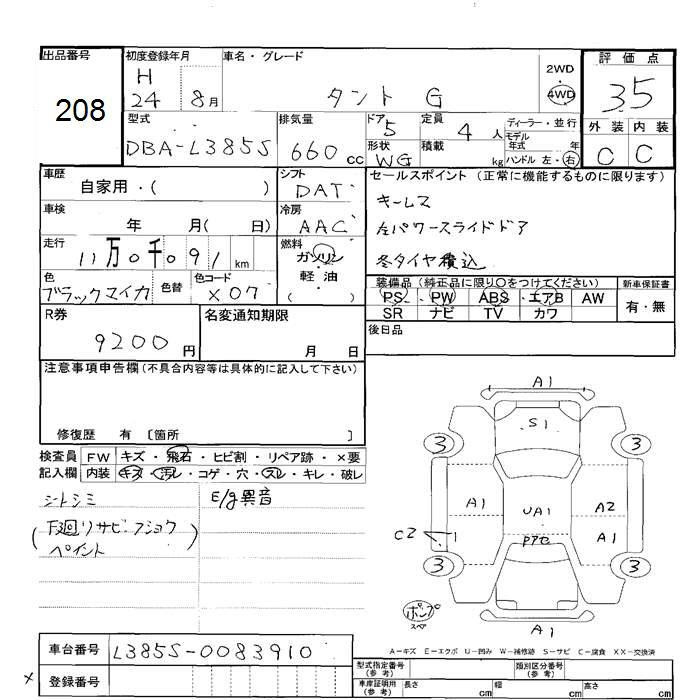 出品番号 初度登録年月 車名・グレード 評価点
208 H 24 8月 タント G 2WD 4WD 35
型式 排気量 ドア 定員 ディーラー・並行 外装 内装
DBA-L385S 660cc 5 4人 モデル年式 年 C C
形状 WG 積載 kg ハンドル 左・右
車歴 シフト セールスポイント (正常に機能するものに限ります)
自家用・( ) DAT キーレス
車検 冷房 左パワースライドドア
年 月( 日) AAC 冬タイヤ積込
走行 燃料
11万0千091km ガソリン 軽・油 ( )
色 色替 色コード 装備品(純正品に限り○をつけてください) 新車保証書
ブラックマイカ X07 PS PW ABS エアB AW 有・無
SR ナビ TV カワ
R券 名変通知期限 後日品
9200円 月 日
注意事項申告欄(不具合内容等は具体的に記入して下さい)
修復歴 有 〔箇所 〕
検査員 FW キズ・飛石・ヒビ割・リペア跡・×要
記入欄 内装 キズ・汚レ・コゲ・穴・スレ・キレ・破レ
シートシミ E/g異音
(下廻リサビ・フショク
ペイント
A1
S1
3 3
A1 UA1 A2
C2 1 A1
Pアセ
3 3
ポンプ
スペア
A1
A-キズ E-エクボ U-凹み W-補修跡 S-サビ C-腐食 XX-交換済
車台番号 L385S-0083910
型式指定番号(参考) 類別区分番号(参考)
× 登録番号 車庫証明用(参考) 長さ cm 幅 cm 高さ cm